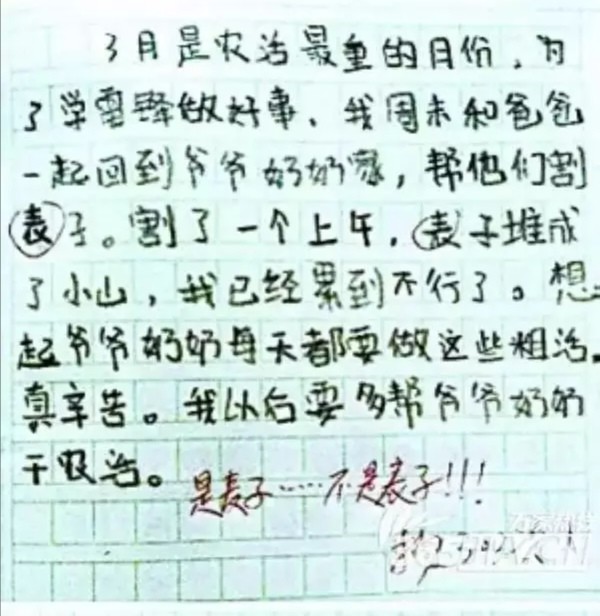 3月是农活最重的月份,为
了学雷锋做好事、我周末和爸爸
一起回到爷爷奶奶家,帮他们割
表子。割了一个上午,表子堆成
了小山,我已经累到不行了。想
起爷爷奶奶每天都要做这些粗活。
真辛苦。我以后要多帮爷爷奶奶
干农活。
是麦子……不是表子!!!